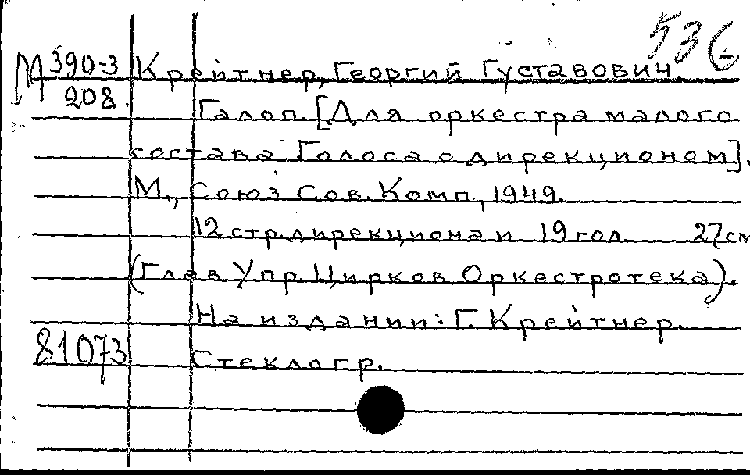 536
М 390-3
208
Крейтнер, Георгий Густавович.
Галоп. [Для оркестра малого
состава Голоса с дирекционом].
М., Союз Сов. Комп., 1949.
12 стр. дирекциона и 19 гол. 27 см
(Глав Упр. Цирков Оркестротека).
На издании: Г. Крейтнер.
81073
Стеклогр.